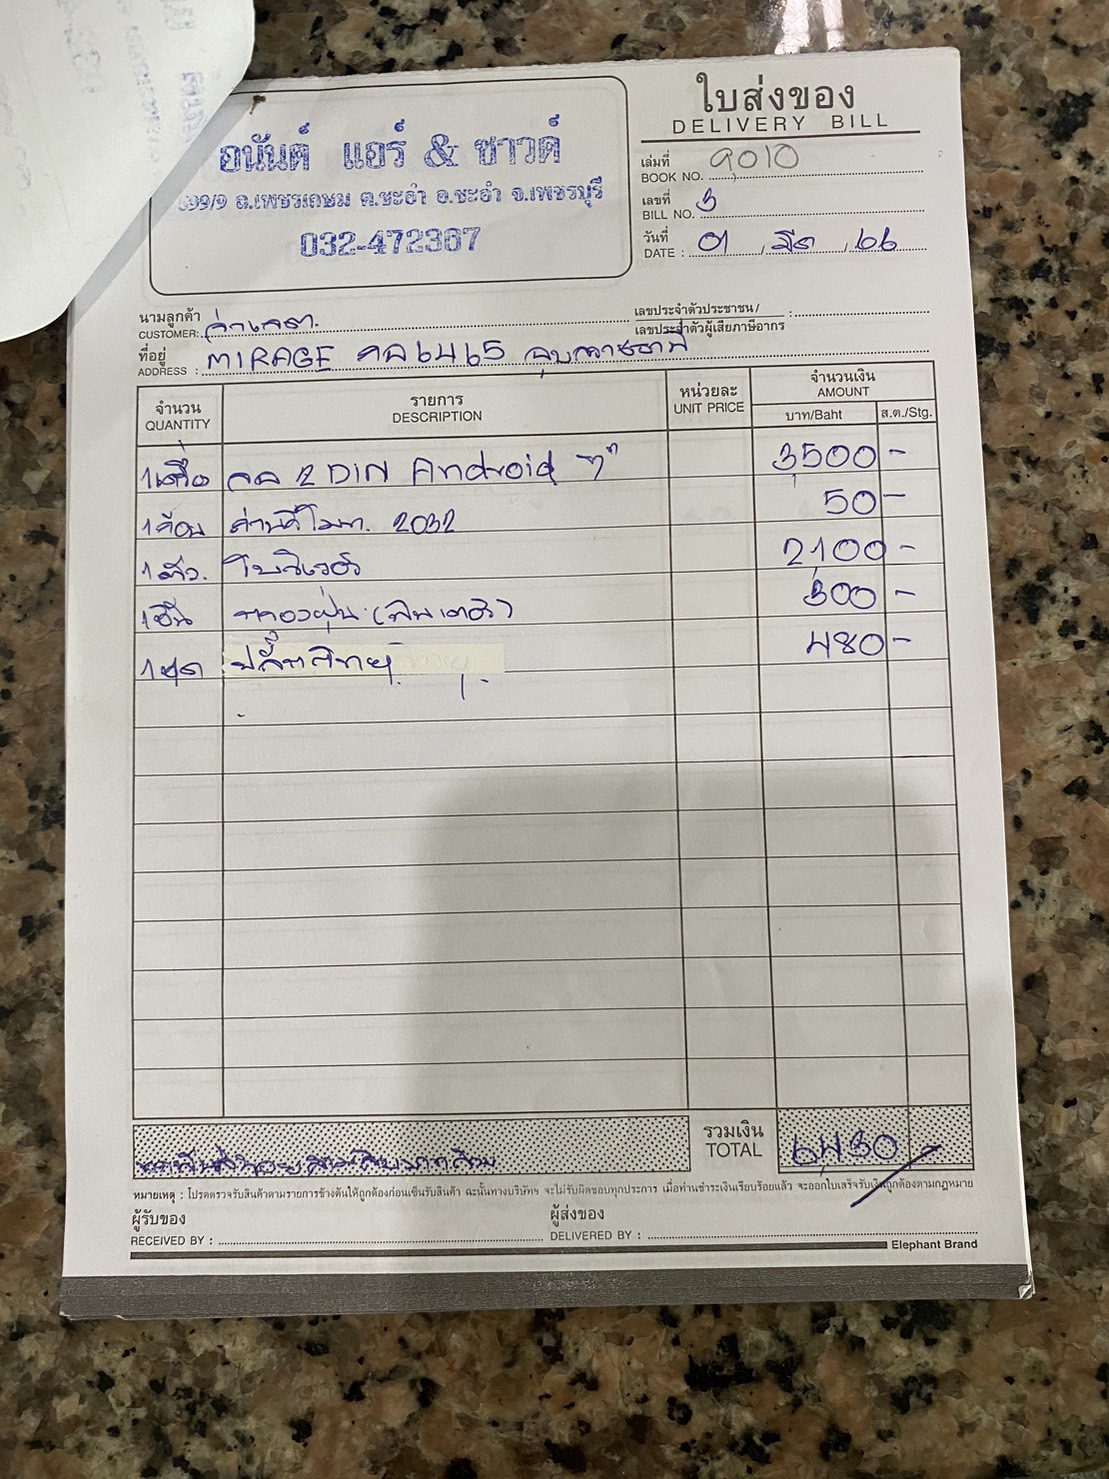 ใบส่งของ
DELIVERY BILL
อนันต์ แอร์ & ซาวด์
99/9 ถ.เพชรเกษม ต.ชะอำ อ.ชะอำ จ.เพชรบุรี
032-472367
เล่มที่
BOOK NO. 9010
เลขที่
BILL NO. 3
วันที่
DATE : 01 มีค 66
นามลูกค้า
CUSTOMER:
เลขประจำตัวประชาชน / :
เลขประจำตัวผู้เสียภาษีอากร
ที่อยู่
ADDRESS : MIRAGE 6465
จำนวน รายการ หน่วยละ จำนวนเงิน
QUANTITY DESCRIPTION UNIT PRICE AMOUNT
บาท/Baht ส.ต./Stg.
1เครื่อง จอ 2 DIN Android 7" 3500 -
1ก้อน ถ่านรีโมท 2032 50 -
1ตัว. โบลิเวอร์ 2,100 -
1อัน กรองฝุ่น (ฟิลเตอร์) 300 -
1ชุด ปลั๊กวิทยุ 480 -
รวมเงิน
TOTAL 6,430 -
หกพันสี่ร้อยสามสิบบาทถ้วน
หมายเหตุ : โปรดตรวจรับสินค้าตามรายการข้างต้นให้ถูกต้องก่อนเซ็นรับสินค้า ฉะนั้นทางบริษัทฯ จะไม่รับผิดชอบทุกประการ เมื่อท่านชำระเงินเรียบร้อยแล้ว จะออกใบเสร็จรับเงินถูกต้องตามกฎหมาย
ผู้รับของ
RECEIVED BY :
ผู้ส่งของ
DELIVERED BY :
Elephant Brand